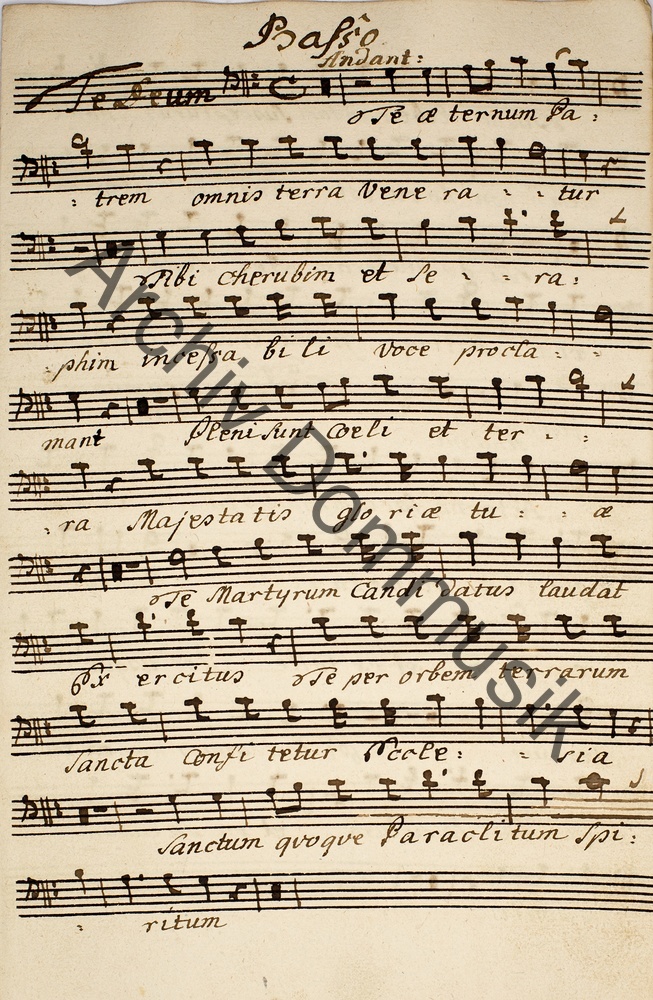 Basso
Andant:
Te Deum
Te æ ternum Pa:
: trem omnis terra Vene ra - - tur
Tibi cherubim et Se - - ra:
: phim incessa bi li voce procla - -
mant Pleni sunt Coeli et ter - -
: ra Majestatis glo riæ tu - - æ
Te Martyrum Candi datus laudat
Ex ercitus Te per orbem terrarum
Sancta Confi tetur Eccle: - sia
Sanctum quoque Paracli tum Spi:
: ritum
Archiv Dommusik